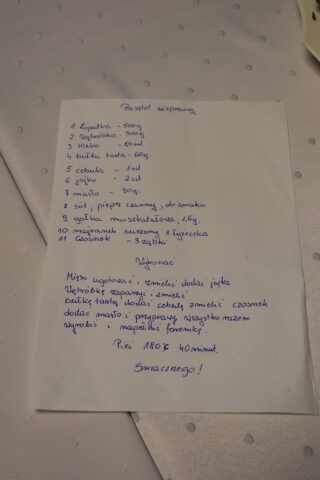 Pasztet wieprzowy
1 Łopatka - 500g
2. Wątróbka - 300g
3 Mleko - 80ml.
4 bułka tarta - 60g.
5 cebula - 1 szt
6 jajko - 2 szt
7 masło - 30g.
8 sól, pieprz czarny, do smaku
9 gałka muszkatałowa, 1,5g.
10 majranek suszony 1 łyżeczka
11 Czosnek - 3 ząbki
Wykonać
Mięso ugotować i zmielić dodać jajka
Wątróbkę zaparzyć i zmielić
bułkę tartą dodać cebulę zmielić czosnek
dodać masło i przyprawy wszystko razem
wyrobić i napełnić foremkę
Piec 180°C 40 minut.
Smacznego!